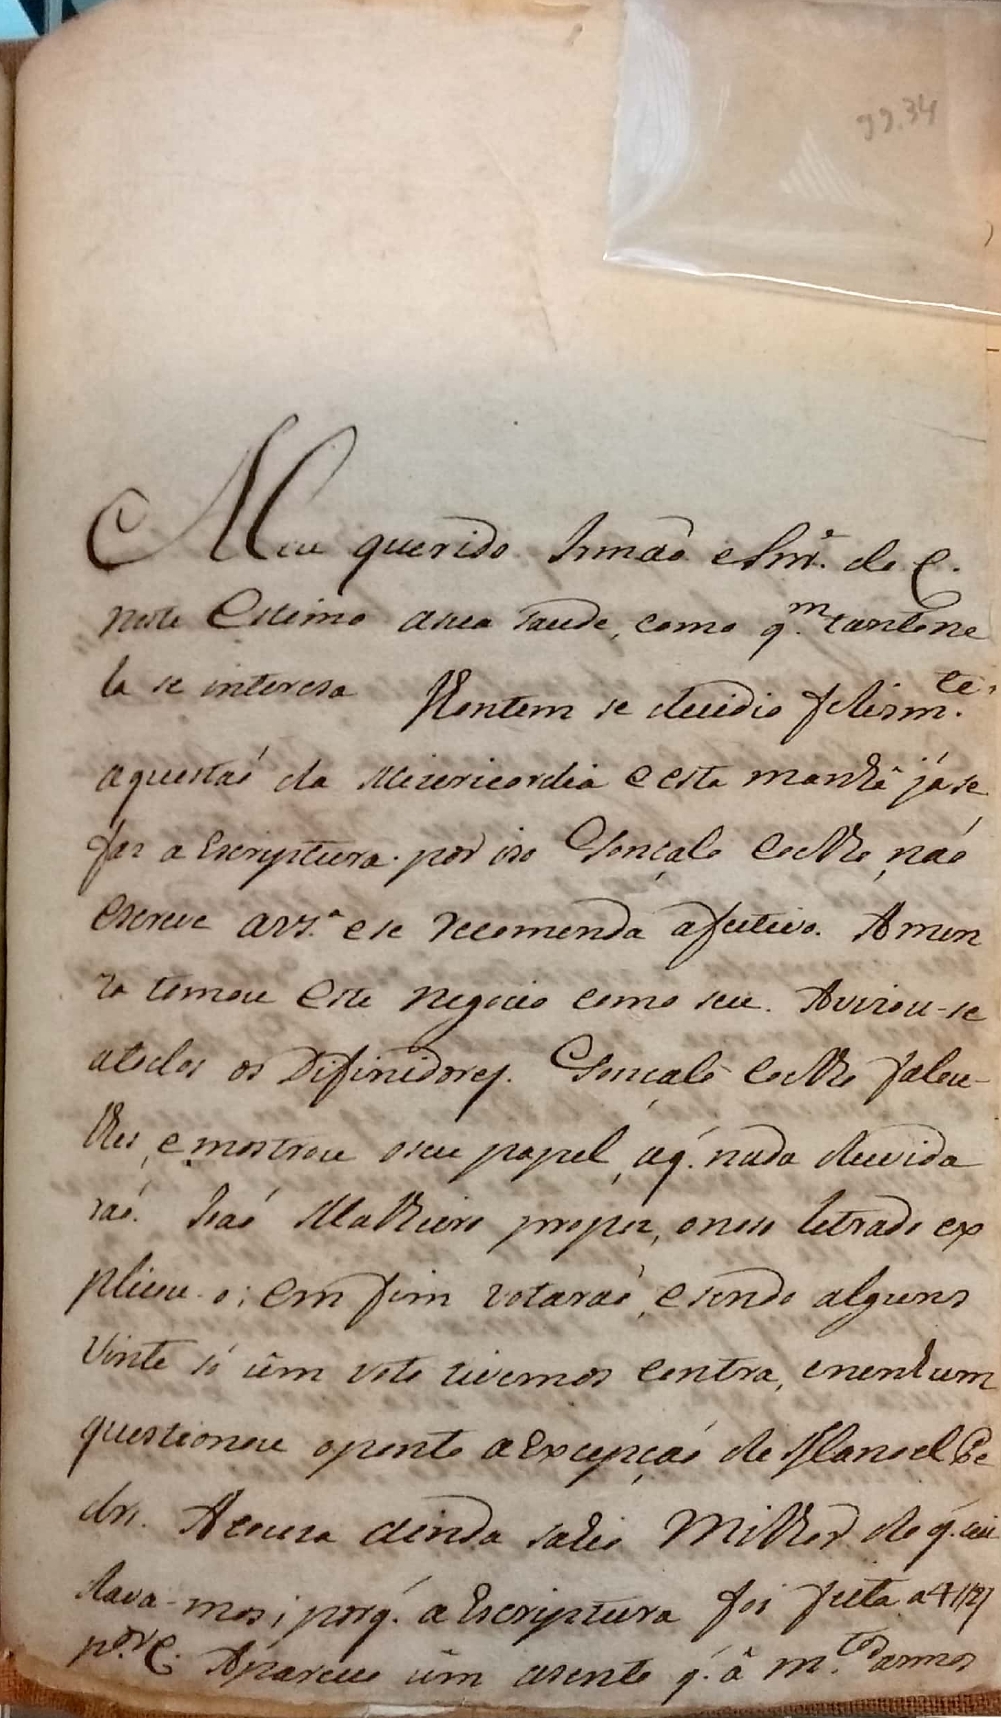 99.34
Meu querido Irmaõ e Snr̃. do C.
neste Estimo asua saude, como q.m tantone
la se interesa Hontem se decidio felism.te
aquestaõ da Mizericordia e esta manhã já se
faz a Escriptura. por iso Gonçalo Coelho naõ
escreve avs.ª e se recomenda afectivo. Amen
za tomou este negocio como seu. Avizou-se
atodos os Difinidores. Gonçalo Coelho falou-
lhes, e mostrou oseu papel, aq. nada duvida
raõ. Joaõ Malheiro propoz, onoso letrado ex
plicou-o; em fim votaraõ, e sendo alguns
vinte só ûm voto tivemos contra, enenhum
questionou oponto a Excepçaõ de Manoel Pe
dro. Acousa ainda sahio Milhor do q. cui
dava-mos; porq. a Escriptura foi feita a 4 1/2
p.r C. Apareceu ûm asento q. â m.tos annos